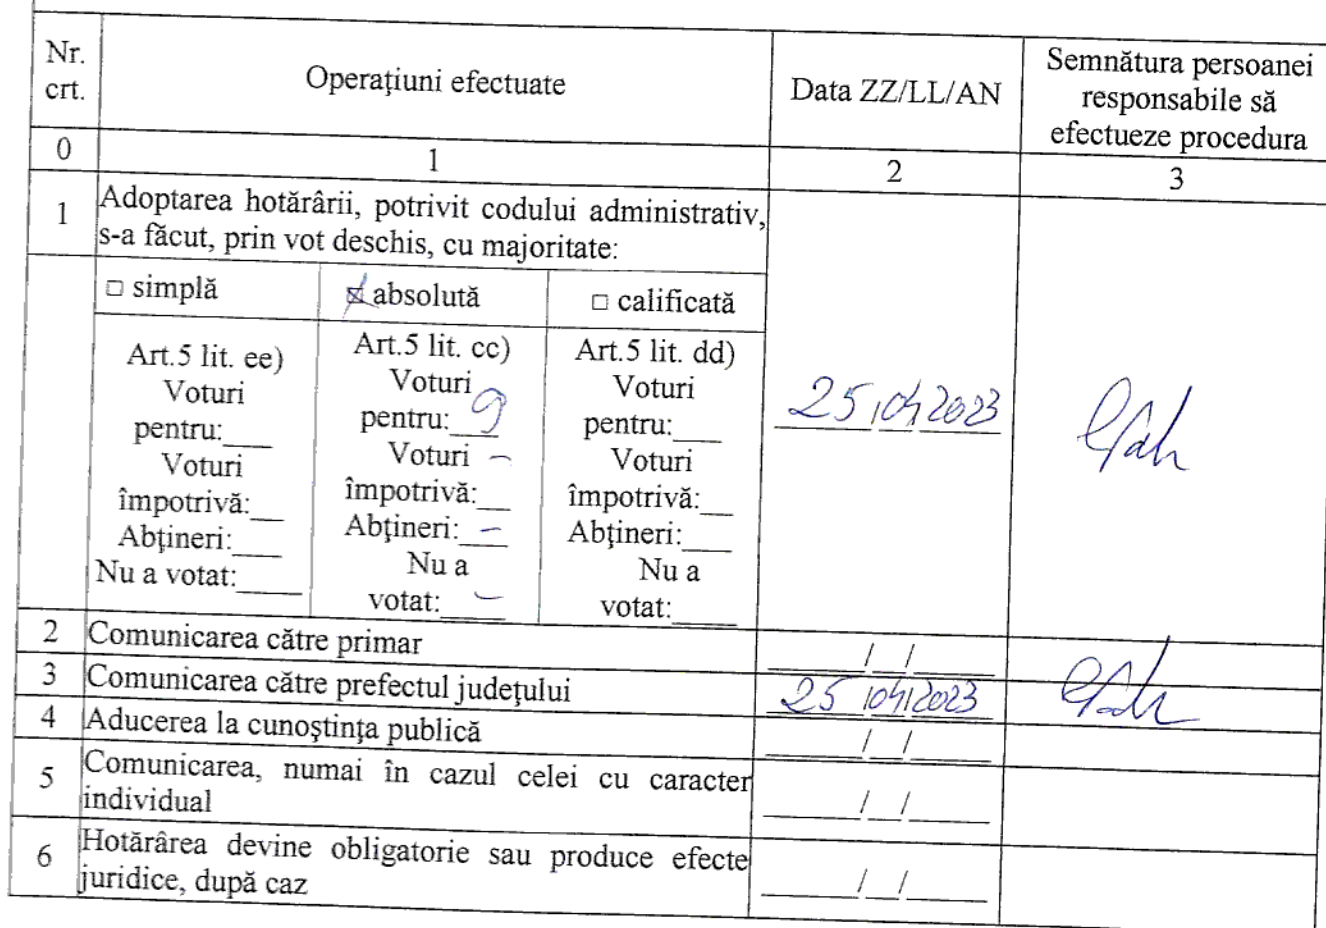 Nr. crt.
Operațiuni efectuate
Data ZZ/LL/AN
Semnătura persoanei
responsabile să
efectueze procedura
0
1
2
3
1
Adoptarea hotărârii, potrivit codului administrativ,
s-a făcut, prin vot deschis, cu majoritate:
□ simplă
☒ absolută
□ calificată
Art.5 lit. ee)
Voturi
pentru:___
Voturi
împotrivă:__
Abțineri:___
Nu a votat:____
Art.5 lit. cc)
Voturi
pentru: 9
Voturi –
împotrivă:__
Abțineri: –
Nu a
votat: –
Art.5 lit. dd)
Voturi
pentru:___
Voturi
împotrivă:__
Abțineri:___
Nu a
votat:____
25/04/2023
2
Comunicarea către primar
____/__/____
3
Comunicarea către prefectul județului
25/04/2023
4
Aducerea la cunoştinţa publică
____/__/____
5
Comunicarea, numai în cazul celei cu caracter
individual
____/__/____
6
Hotărârea devine obligatorie sau produce efecte
juridice, după caz
____/__/____